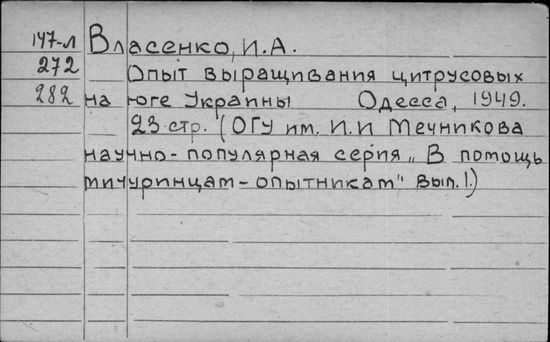 147-л Власенко, И.А.
272 Опыт выращивания цитрусовых
282 на юге Украины Одесса, 1949.
23 стр. (ОГУ им. И.И Мечникова
научно-популярная серия „В помощь
мичуринцам-опытникам" вып. 1.)